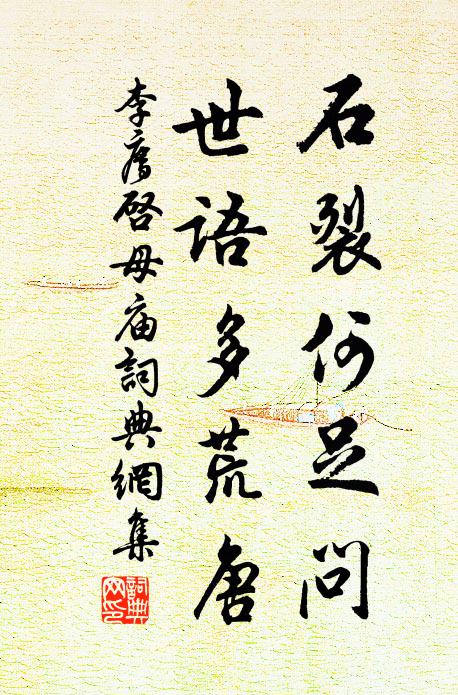 石裂何足問
世語多荒唐
李廌啓母庙詞典網集
詞典
网印